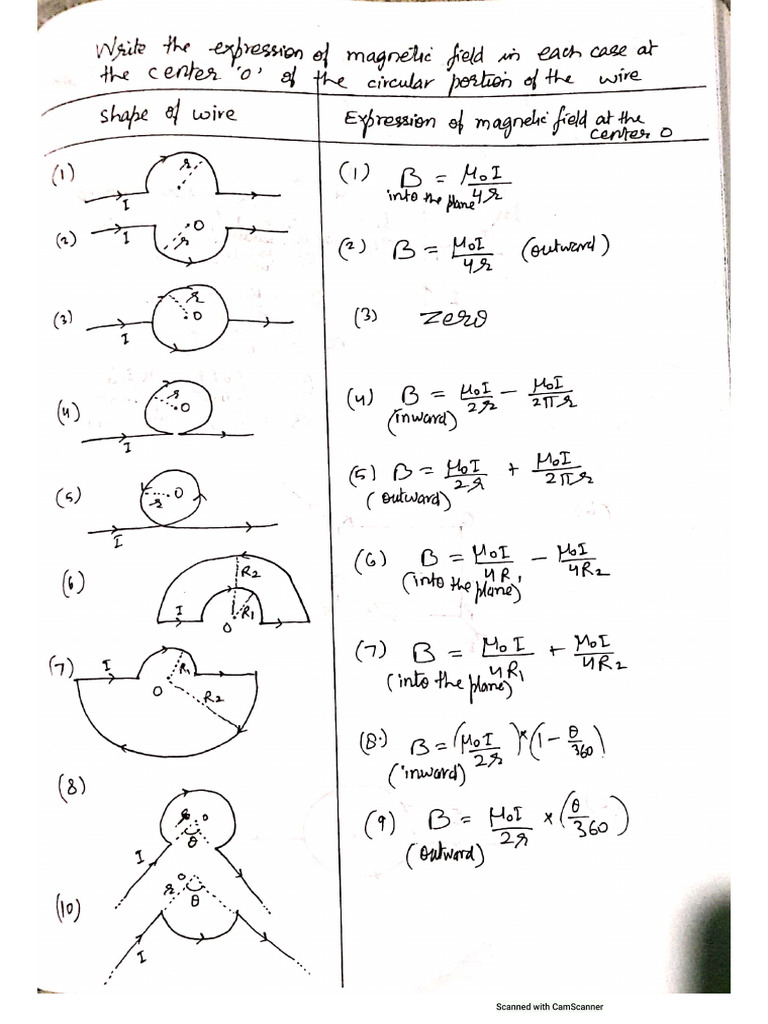 Write the expression of magnetic field in each case at
the center 'O' of the circular portion of the wire
shape of wire
Expression of magnetic field at the
center O
(1)
r
I
(1) B = μ₀I/4r
into the plane
(2)
O
r
I
(2) B = μ₀I/4r (outward)
(3)
r
O
I
(3) Zero
(4)
r
O
I
(4) B = μ₀I/2r − μ₀I/2πr
(inward)
(5)
O
r
I
(5) B = μ₀I/2r + μ₀I/2πr
(outward)
(6)
R2
R1
I
O
(6) B = μ₀I/4R₁ − μ₀I/4R2
(into the plane)
(7)
I
R1
O
R2
(7) B = μ₀I/4R₁ + μ₀I/4R2
(into the plane)
(8)
r
O
θ
I
(8.) B = (μ₀I/2r)×(1 − θ/360)
(inward)
(10)
O
r
θ
I
(9) B = μ₀I/2r × (θ/360)
(outward)
Scanned with CamScanner